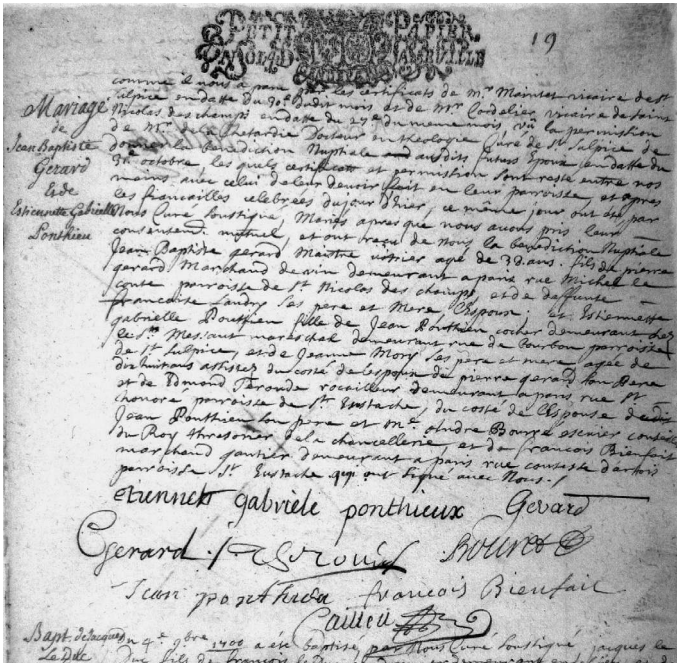 PETIT PAPIER
19
Mariage
de
Jean Baptiste
Gerard
Et de
Estiennette Gabrielle
Ponthieu
comme il nous a paru par les certificats de Mr. vicaire de St
Sulpice en datte du 30e dudit mois et de Mr Cordelier vicaire de saint
Nicolas des champs en datte du 27e du meme mois, vû la permission
de Mr. de la Chetardie Docteur en theologie Curé de St Sulpice de
donner la benediction Nuptiale ausdits futurs Epoux en datte du
31 octobre les quels certificats et permission sont resté entre nos
mains avec celui de leur devoir fait en leur parroisse, et apres
les fiancailles celebrées du jour d'hier, ce même jour ont été par
Nous Curé soustigné, Mariés apres que nous avons pris leur
consentemt. mutuel, et ont reçu de nous la benediction Nuptiale
Jean Baptiste gerard Maitre age de ans. fils de pierre
gerard Marchand de vin demeurant a paris rue Michel le
conte parroisse de St Nicolas des champs, et de deffunte
francoise Landry ses pere et Mere l'Espoux; et Estiennette
gabrielle Ponthieu fille de Jean Ponthieu cocher demeurant chez
le Sr. mareschal demeurant rue de bourbon parroisse
de St Sulpice, et de Jeanne Mory ses pere et mere agée de
dix huit ans assistez du costé de lespoux de pierre gerard son Pere
et de Edmond rocailleur demeurant a paris rue St
honoré parroisse de St Eustache, du costé de l'Espouse dudit
Jean Ponthieu son pere et Me. Bouret escuier conseiller
du Roy thresorier de la chancellerie et de francois Bienfait
marchand gantier demeurant a paris rue contesse dartois
parroisse St Eustache qui ont signé avec Nous./
etiennett gabrièle ponthieux Gerard
Gerard Bouret
Jean ponthieu francois Bienfait
Cailleu
Bapt. de Jacques
Le Duc
Du 4e. 9bre 1700 a été baptisé par Nous Curé soustigné, jacques le
Duc fils de francois le Duc